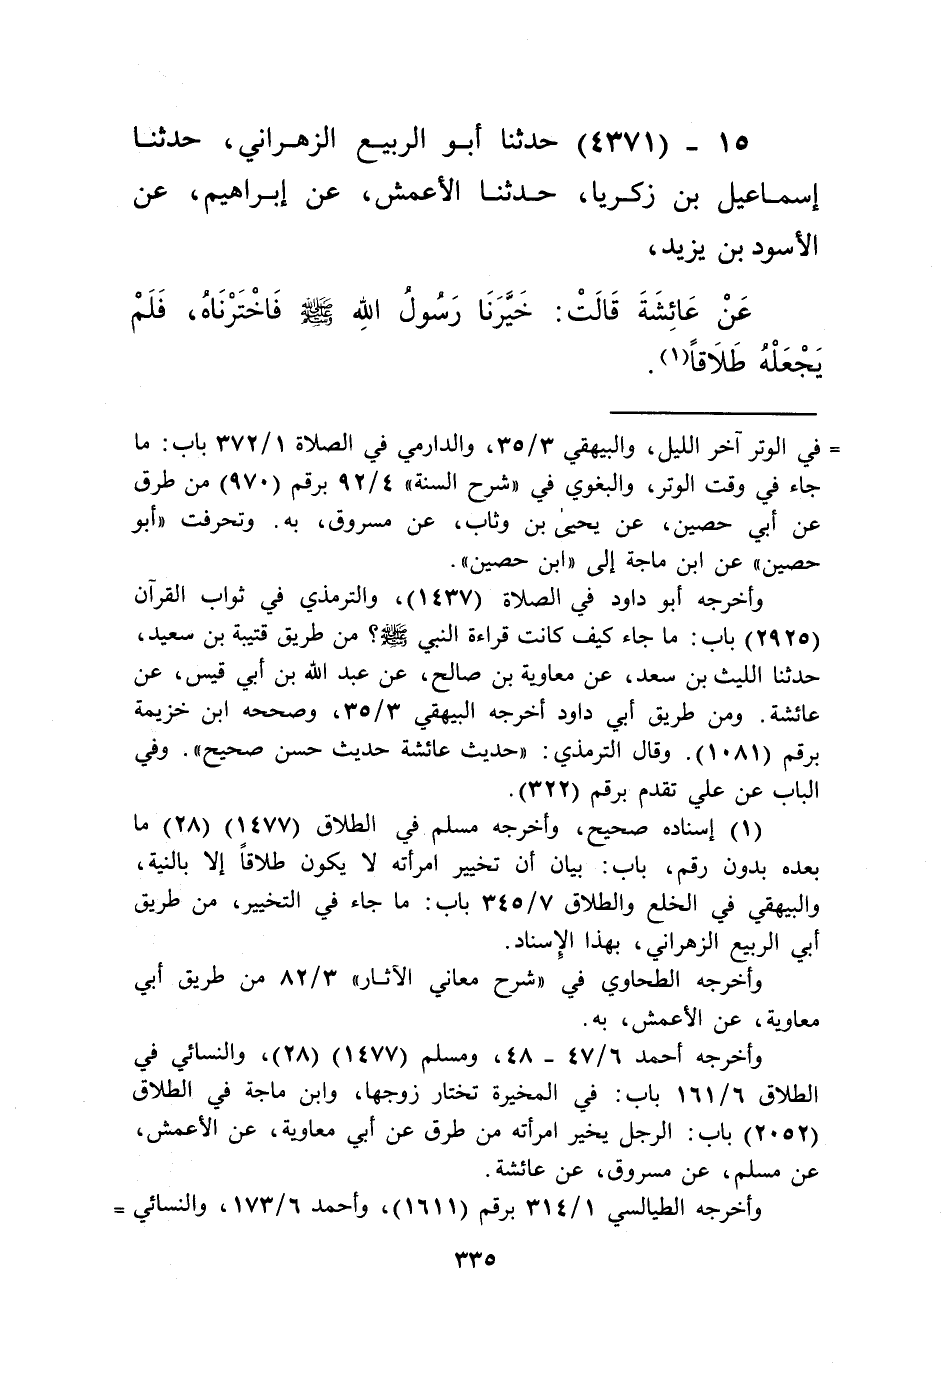 ١٥ - (٤٣٧١) حدثنا أبو الربيع الزهراني، حدثنا
إسماعيل بن زكريا، حدثنا الأعمش، عن إبراهيم، عن
الأسود بن يزيد،
عَنْ عَائِشَةَ قَالَتْ: خَيَّرَنَا رَسُولُ اللهِ ﷺ فَاخْتَرْنَاهُ، فَلَمْ
يَجْعَلْهُ طَلَاقاً(١).
= في الوتر آخر الليل، والبيهقي ٣٥/٣، والدارمي في الصلاة ٣٧٢/١ باب: ما
جاء في وقت الوتر، والبغوي في «شرح السنة» ٩٢/٤ برقم (٩٧٠) من طرق
عن أبي حصين، عن يحيىٰ بن وثاب، عن مسروق، به. وتحرفت «أبو
حصين» عن ابن ماجة إلى «ابن حصين».
وأخرجه أبو داود في الصلاة (١٤٣٧)، والترمذي في ثواب القرآن
(٢٩٢٥) باب: ما جاء كيف كانت قراءة النبي ﷺ؟ من طريق قتيبة بن سعيد،
حدثنا الليث بن سعد، عن معاوية بن صالح، عن عبد الله بن أبي قيس، عن
عائشة. ومن طريق أبي داود أخرجه البيهقي ٣٥/٣، وصححه ابن خزيمة
برقم (١٠٨١). وقال الترمذي: «حديث عائشة حديث حسن صحيح». وفي
الباب عن علي تقدم برقم (٣٢٢).
(١) إسناده صحيح، وأخرجه مسلم في الطلاق (١٤٧٧) (٢٨) ما
بعده بدون رقم، باب: بيان أن تخيير امرأته لا يكون طلاقاً إلا بالنية،
والبيهقي في الخلع والطلاق ٣٤٥/٧ باب: ما جاء في التخيير، من طريق
أبي الربيع الزهراني، بهذا الإسناد.
وأخرجه الطحاوي في «شرح معاني الآثار» ٨٢/٣ من طريق أبي
معاوية، عن الأعمش، به.
وأخرجه أحمد ٤٧/٦ - ٤٨، ومسلم (١٤٧٧) (٢٨)، والنسائي في
الطلاق ١٦١/٦ باب: في المخيرة تختار زوجها، وابن ماجة في الطلاق
(٢٠٥٢) باب: الرجل يخير امرأته من طرق عن أبي معاوية، عن الأعمش،
عن مسلم، عن مسروق، عن عائشة.
وأخرجه الطيالسي ٣١٤/١ برقم (١٦١١)، وأحمد ١٧٣/٦، والنسائي =
٣٣٥